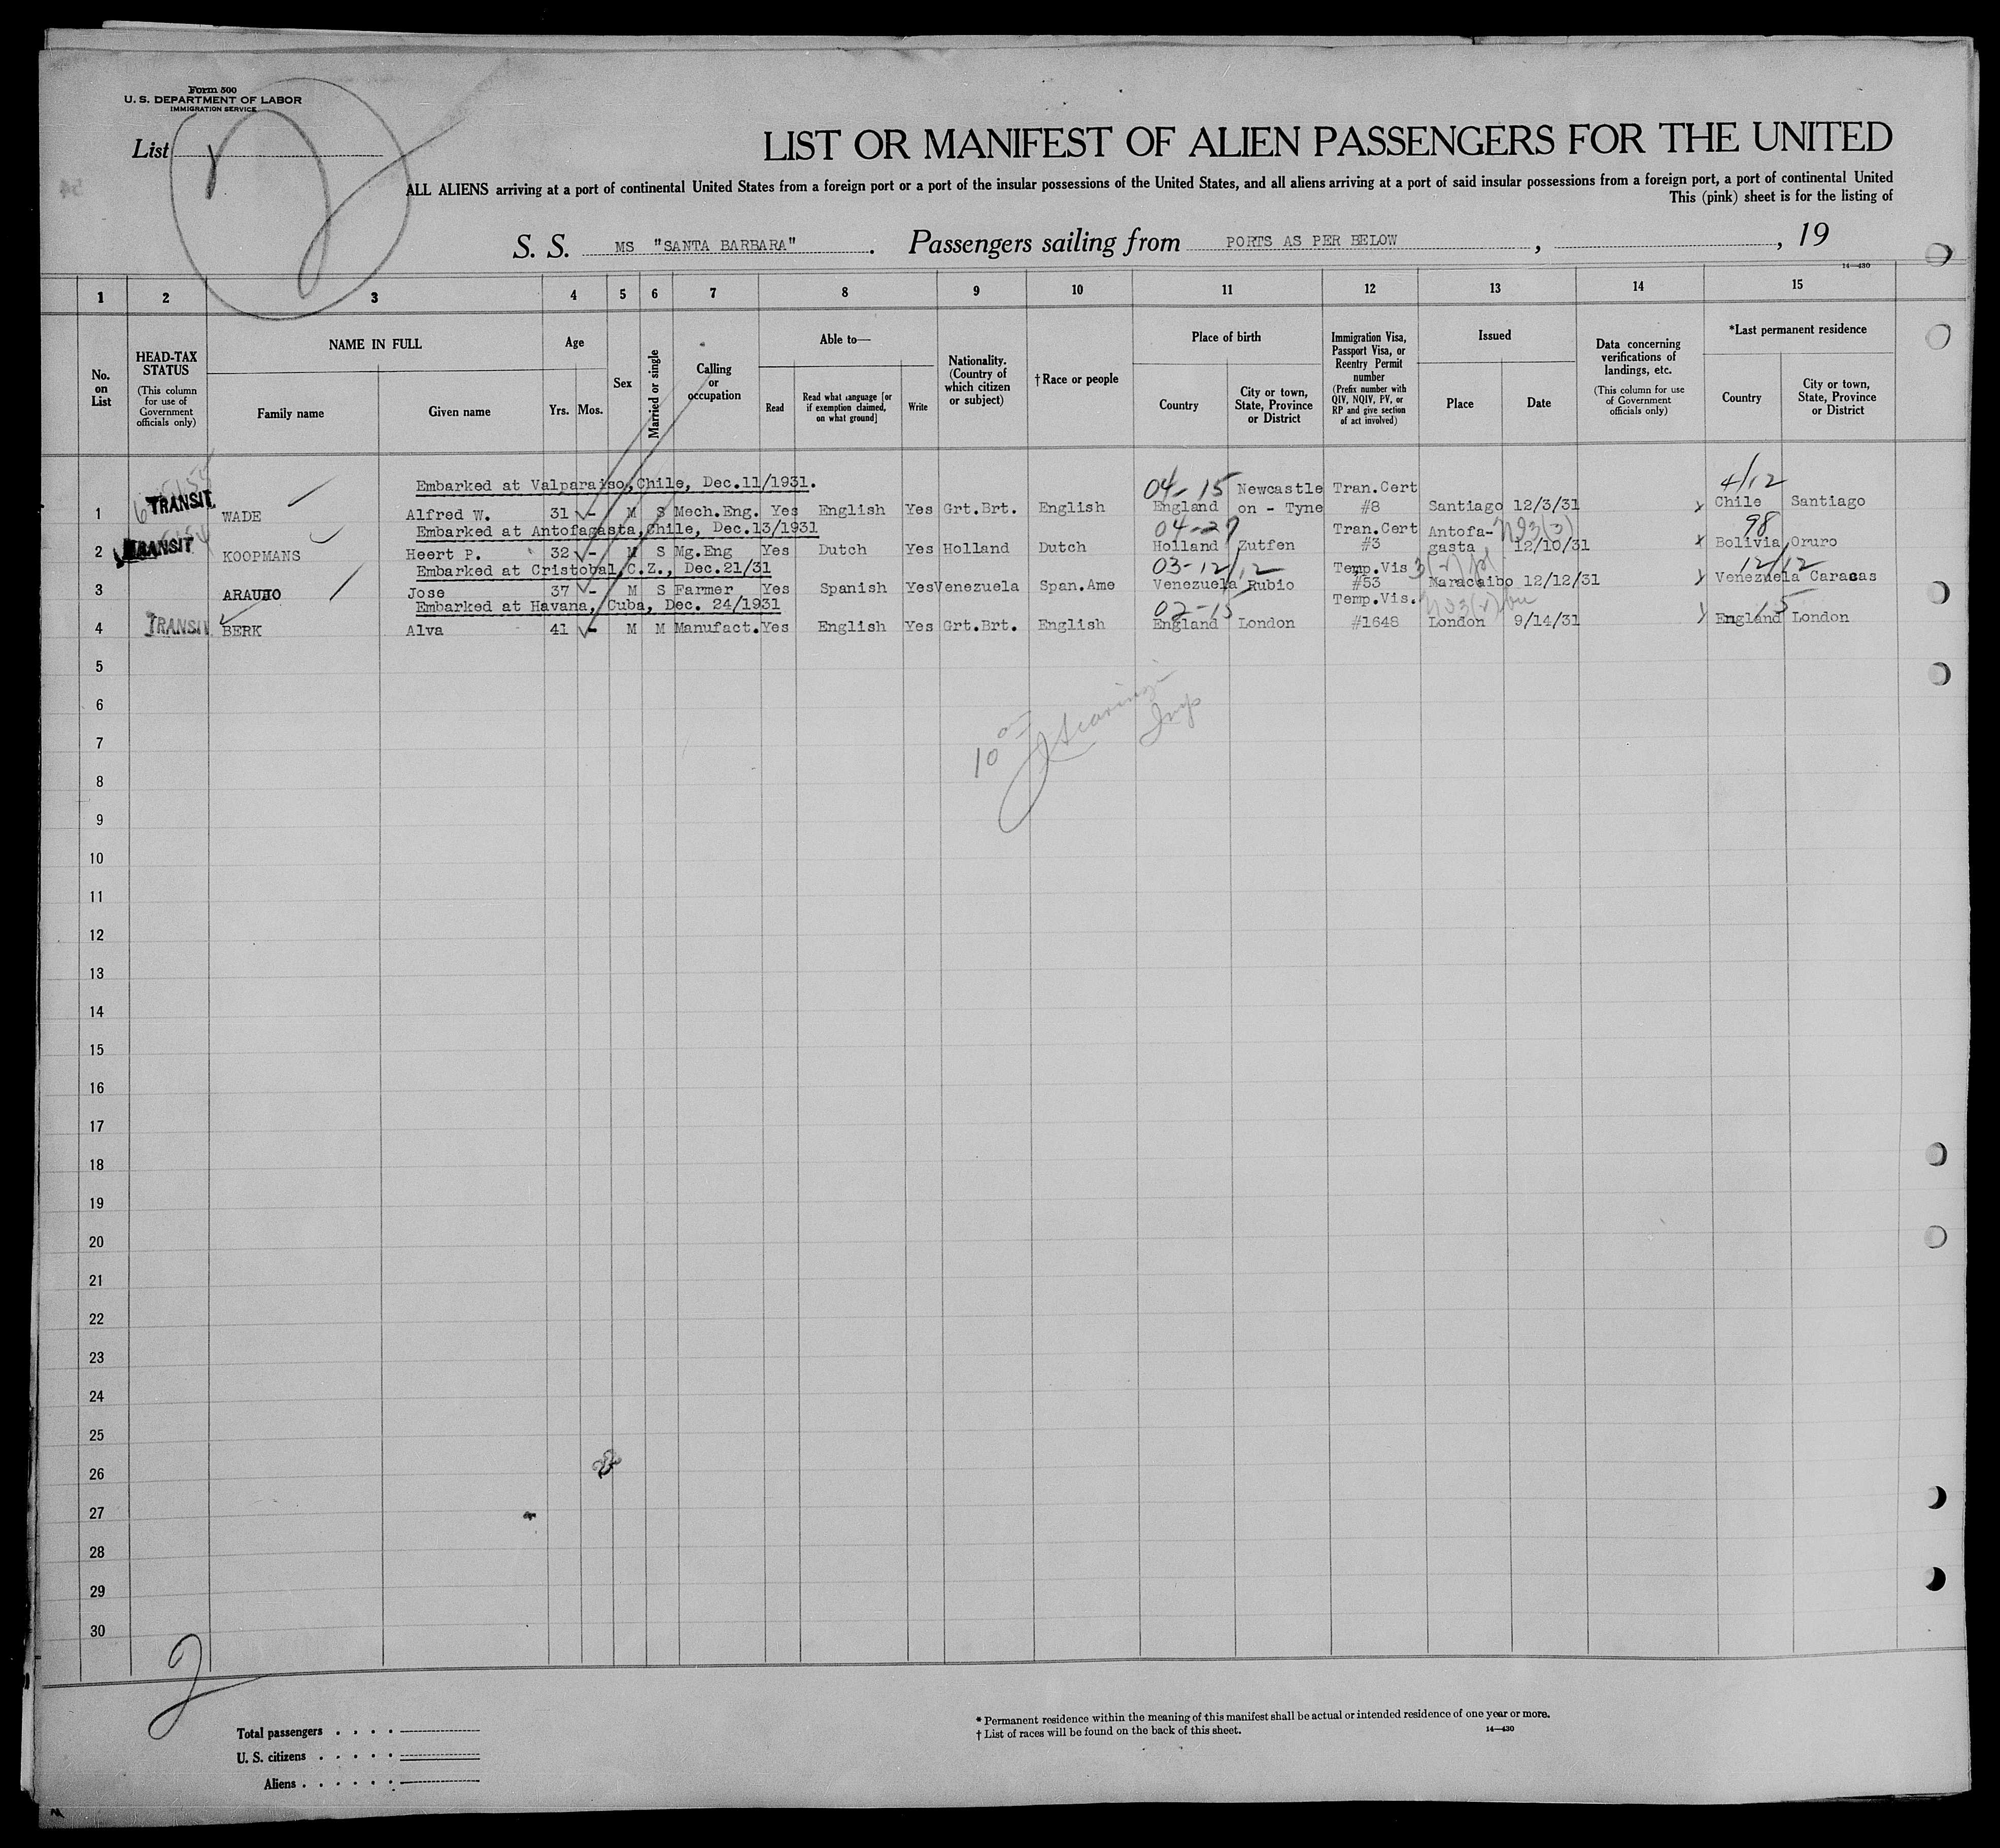 Form 500
U. S. DEPARTMENT OF LABOR
IMMIGRATION SERVICE
List
2
LIST OR MANIFEST OF ALIEN PASSENGERS FOR THE UNITED
ALL ALIENS arriving at a port of continental United States from a foreign port or a port of the insular possessions of the United States, and all aliens arriving at a port of said insular possessions from a foreign port, a port of continental United
This (pink) sheet is for the listing of
S. S. MS "SANTA BARBARA" . Passengers sailing from PORTS AS PER BELOW , , 19
14—430
1 2 3 4 5 6 7 8 9 10 11 12 13 14 15
No. on List
HEAD-TAX STATUS
(This column for use of Government officials only)
NAME IN FULL
Family name
Given name
Age
Yrs. Mos.
Sex
Married or single
Calling or occupation
Able to—
Read
Read what language [or if exemption claimed, on what ground]
Write
Nationality. (Country of which citizen or subject)
† Race or people
Place of birth
Country
City or town, State, Province or District
Immigration Visa, Passport Visa, or Reentry Permit number
(Prefix number with QIV, NQIV, PV, or RP and give section of act involved)
Issued
Place
Date
Data concerning verifications of landings, etc.
(This column for use of Government officials only)
*Last permanent residence
Country
City or town, State, Province or District
Embarked at Valparaiso,Chile, Dec.11/1931. 04-15 Newcastle Tran.Cert 4/12
1 TRANSIT WADE Alfred W. 31 - M S Mech.Eng. Yes English Yes Grt.Brt. English England on - Tyne #8 Santiago 12/3/31 Chile Santiago
Embarked at Antofagasta,Chile, Dec.13/1931 04-27 Tran.Cert Antofa- 98
2 TRANSIT KOOPMANS Heert P. 32 - M S Mg.Eng Yes Dutch Yes Holland Dutch Holland Zutfen #3 gasta 12/10/31 Bolivia Oruro
Embarked at Cristobal,C.Z., Dec.21/31 03-12/12 Temp.Vis 12/12
3 ARAUJO Jose 37 - M S Farmer Yes Spanish Yes Venezuela Span.Ame Venezuela Rubio #53 Maracaibo 12/12/31 Venezuela Caracas
Embarked at Havana, Cuba, Dec. 24/1931 02-15 Temp.Vis. 15
4 TRANSIT BERK Alva 41 - M M Manufact. Yes English Yes Grt.Brt. English England London #1648 London 9/14/31 England London
5
6
7
8
9
10
11
12
13
14
15
16
17
18
19
20
21
22
23
24
25
26
27
28
29
30
2
Total passengers . . . .
U. S. citizens . . . . .
Aliens . . . . . .
* Permanent residence within the meaning of this manifest shall be actual or intended residence of one year or more.
† List of races will be found on the back of this sheet.
14—430